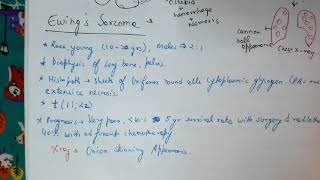 Osteoid
hemorrhage
+ necrosis
Cannon
ball
appearance
Chest X-ray
Ewing's Sarcoma
* Rare, young (10-20 yrs), Males → 2:1
* Diaphysis of long bone, pelvis.
* Histopath → Sheets of Uniform round cells cytoplasmic glycogen
extensive necrosis.
* t(11;22)
* Prognosis → Very poor, <10% 5 yr survival rate with surgery & radio
40% with adjuvant chemotherapy
X-ray → Onion skinning Appearance